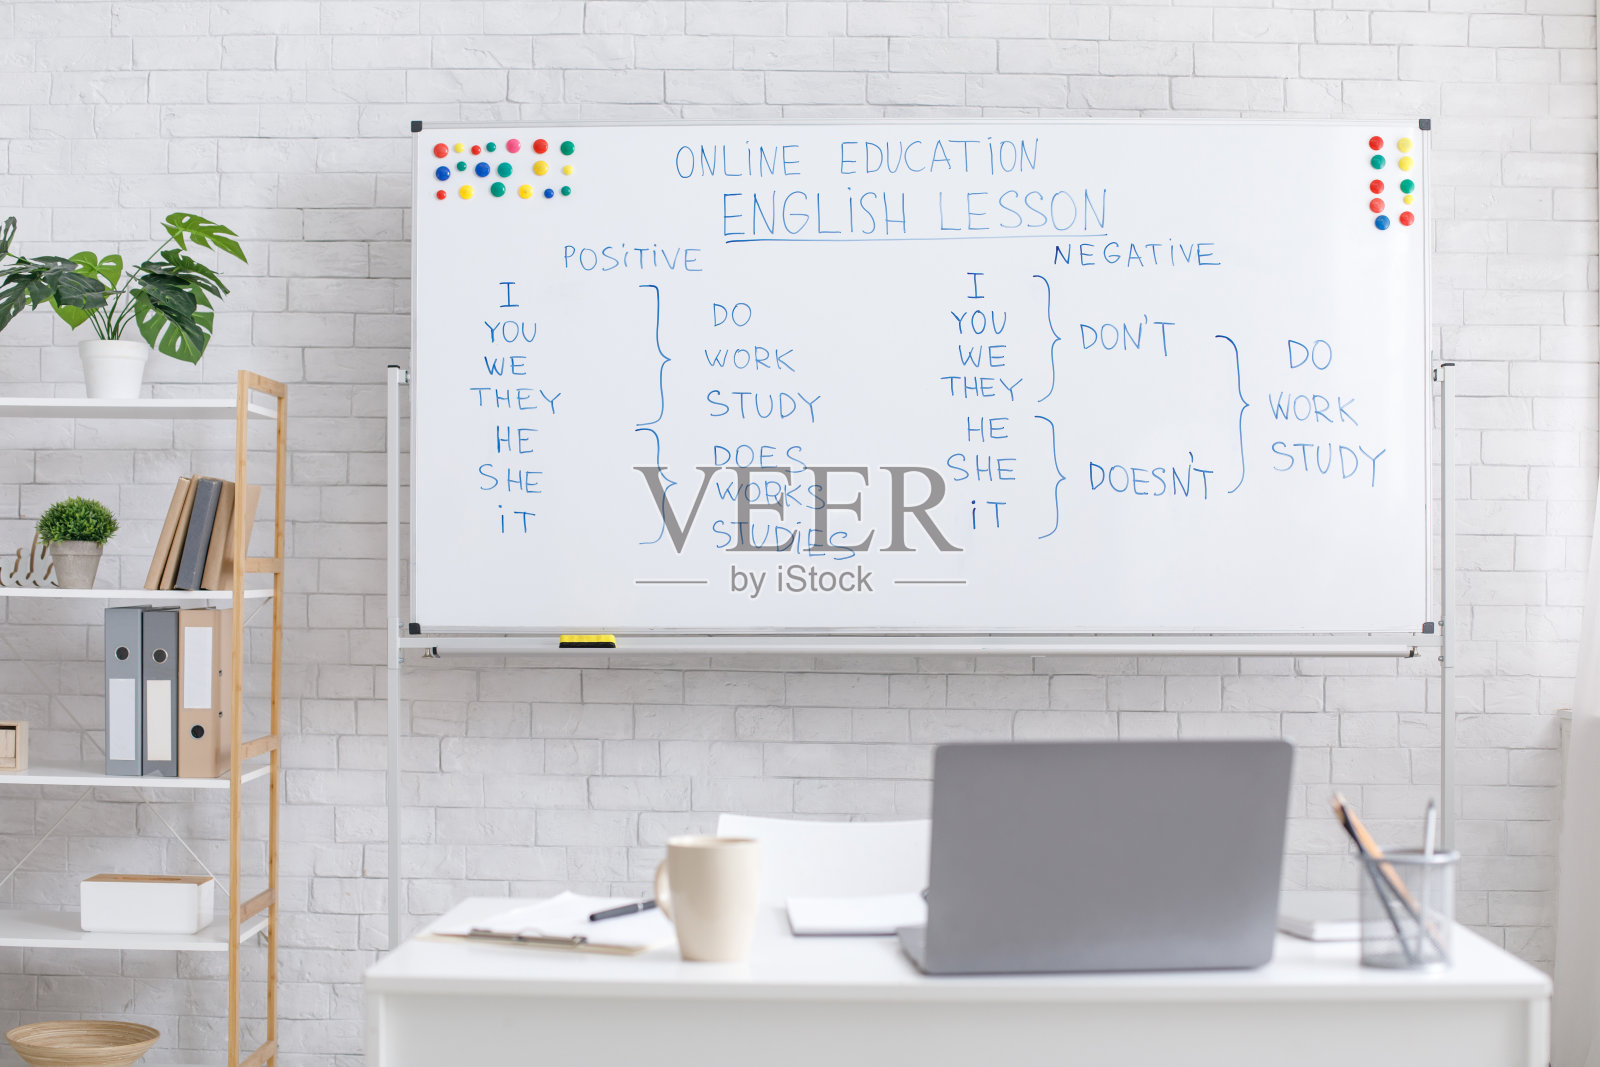 ONLINE EDUCATION
ENGLISH LESSON
POSiTiVE
I
YOU
WE
THEY
HE
SHE
iT
DO
WORK
STUDY
DOES
WORKS
STUDiES
NEGATIVE
I
YOU
WE
THEY
HE
SHE
iT
DON'T
DOESN'T
DO
WORK
STUDY
VEER
by iStock